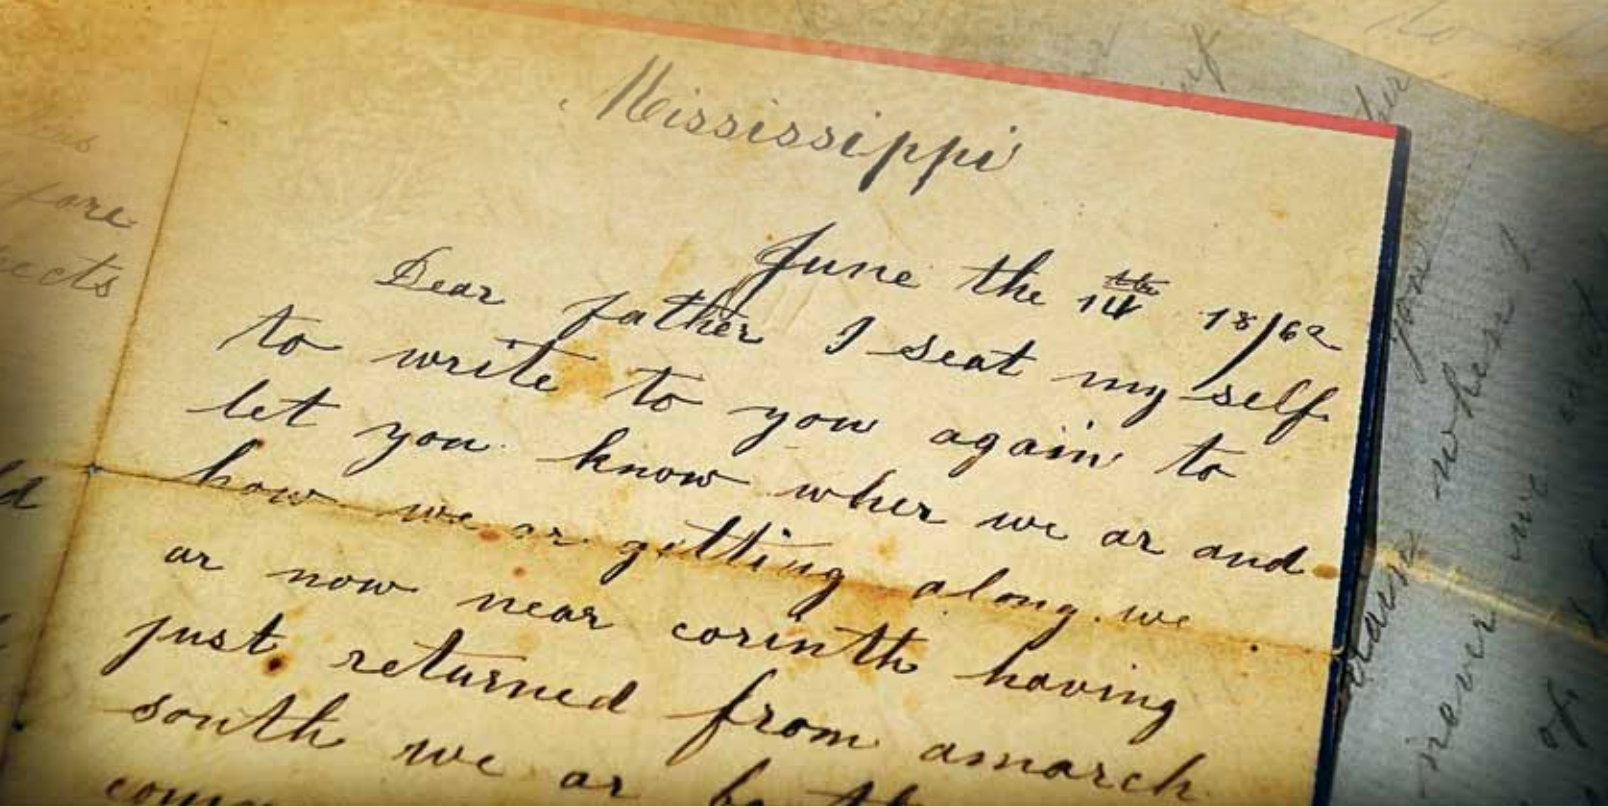 Mississippi
June the 14th 18/62
Dear father I seat my self
to write to you again to
let you know wher we ar and
how we ar getting along we
ar now near corinth having
just returned from amarch
south we ar
fore
ects
when
never
of